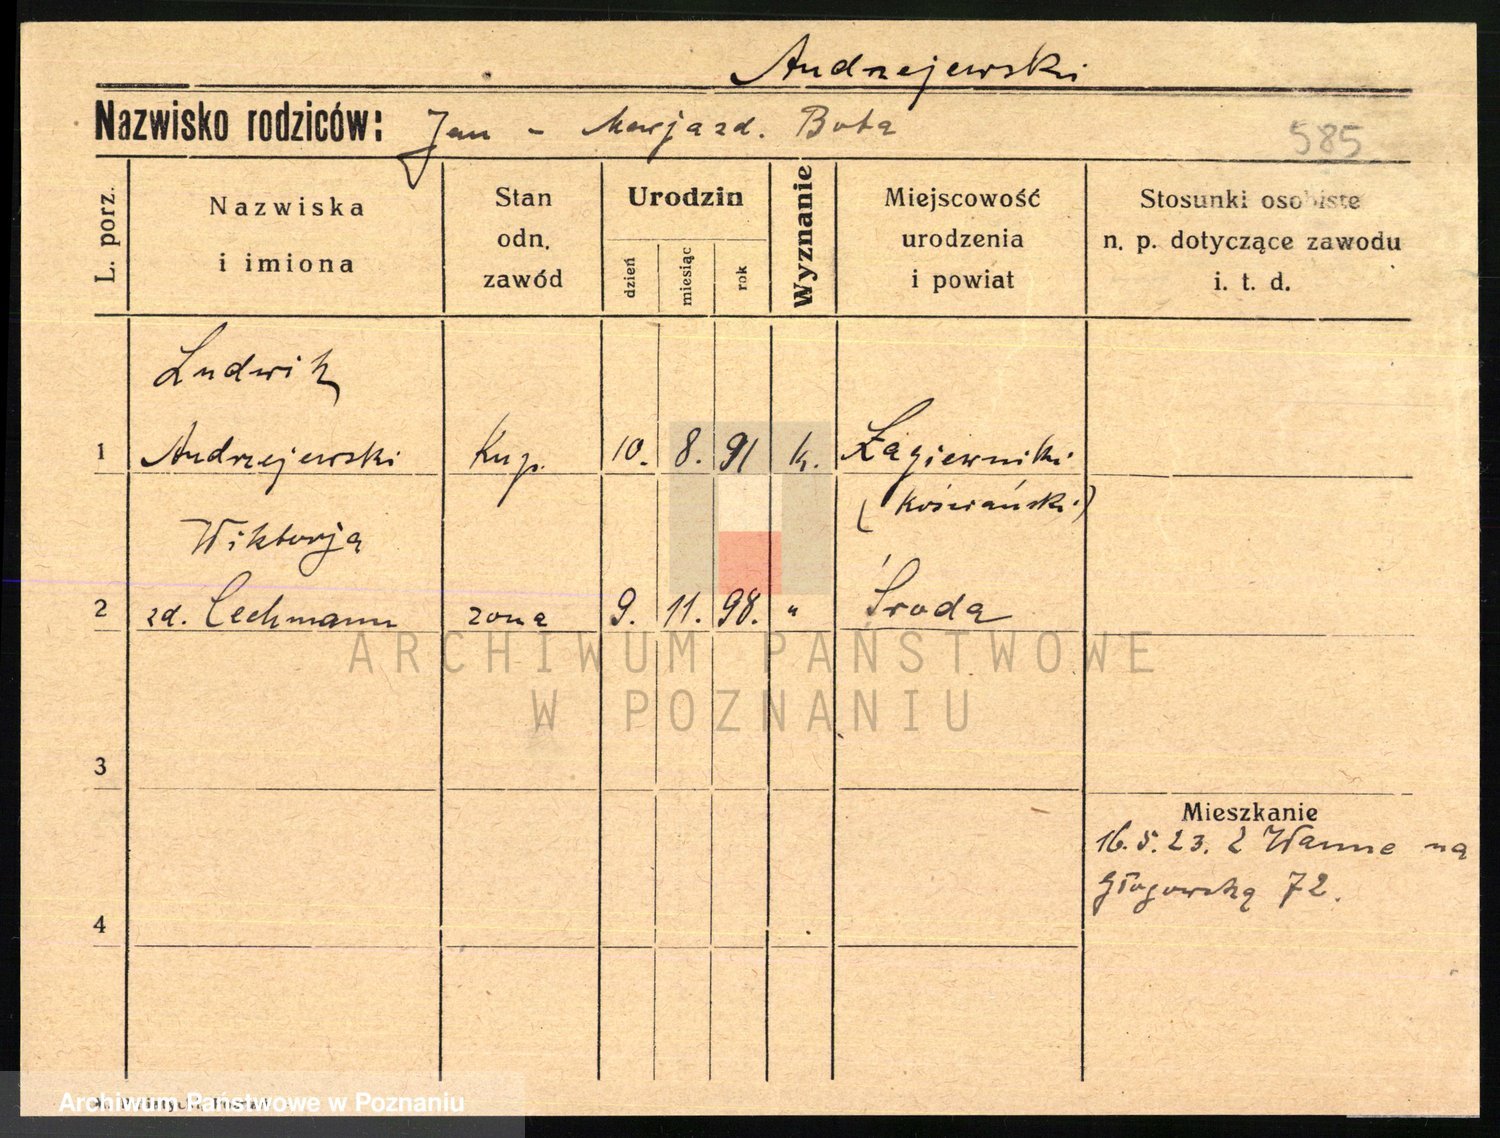 Andrzejewski
Nazwisko rodziców: Jan - Marja zd. Bota
585
L. porz.
Nazwiska
i imiona
Stan
odn.
zawód
Urodzin
dzień
miesiąc
rok
Wyznanie
Miejscowość
urodzenia
i powiat
Stosunki osobiste
n. p. dotyczące zawodu
i. t. d.
Ludwik
1 Andrzejewski Kup. 10. 8. 91 k. Łagiewniki
(Kościański)
Wiktorja
2 zd. Lechmann żona 9. 11. 98. " Środa
ARCHIWUM PAŃSTWOWE
W POZNANIU
3
Mieszkanie
16. 5. 23. z Wanne na
Głogowską 72.
4
Archiwum Państwowe w Poznaniu